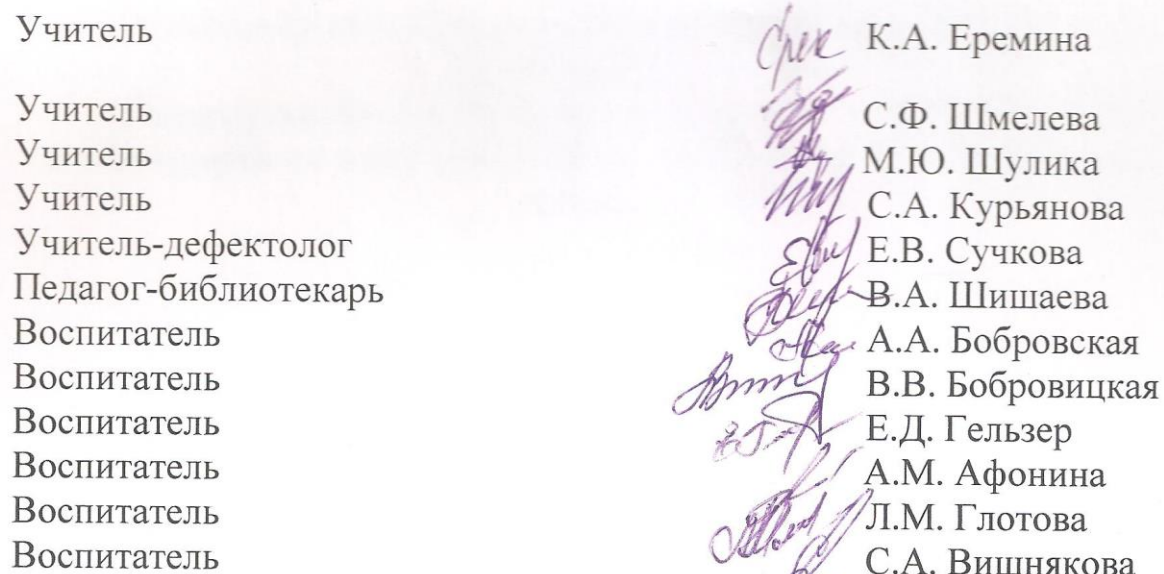 Учитель К.А. Еремина
Учитель С.Ф. Шмелева
Учитель М.Ю. Шулика
Учитель С.А. Курьянова
Учитель-дефектолог Е.В. Сучкова
Педагог-библиотекарь В.А. Шишаева
Воспитатель А.А. Бобровская
Воспитатель В.В. Бобровицкая
Воспитатель Е.Д. Гельзер
Воспитатель А.М. Афонина
Воспитатель Л.М. Глотова
Воспитатель С.А. Вишнякова